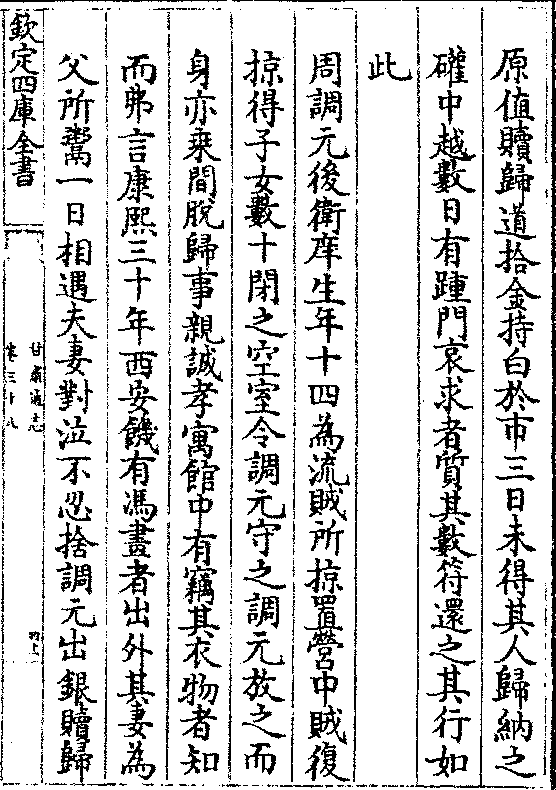 原值贖歸道拾金持白於市三日未得其人歸納之
礶中越數日有踵門哀求者質其數符還之其行如
此
周調元後衛庠生年十四為流賊所掠置營中賊復
掠得子女數十閉之空室令調元守之調元放之而
身亦乗間脫歸事親誠孝寓館中有竊其衣物者知
而弗言康熙三十年西安饑有馮晝者出外其妻為
父所鬻一日相遇夫妻對泣不忍捨調元出銀贖歸
欽定四庫全書
甘肅通志
卷三十八